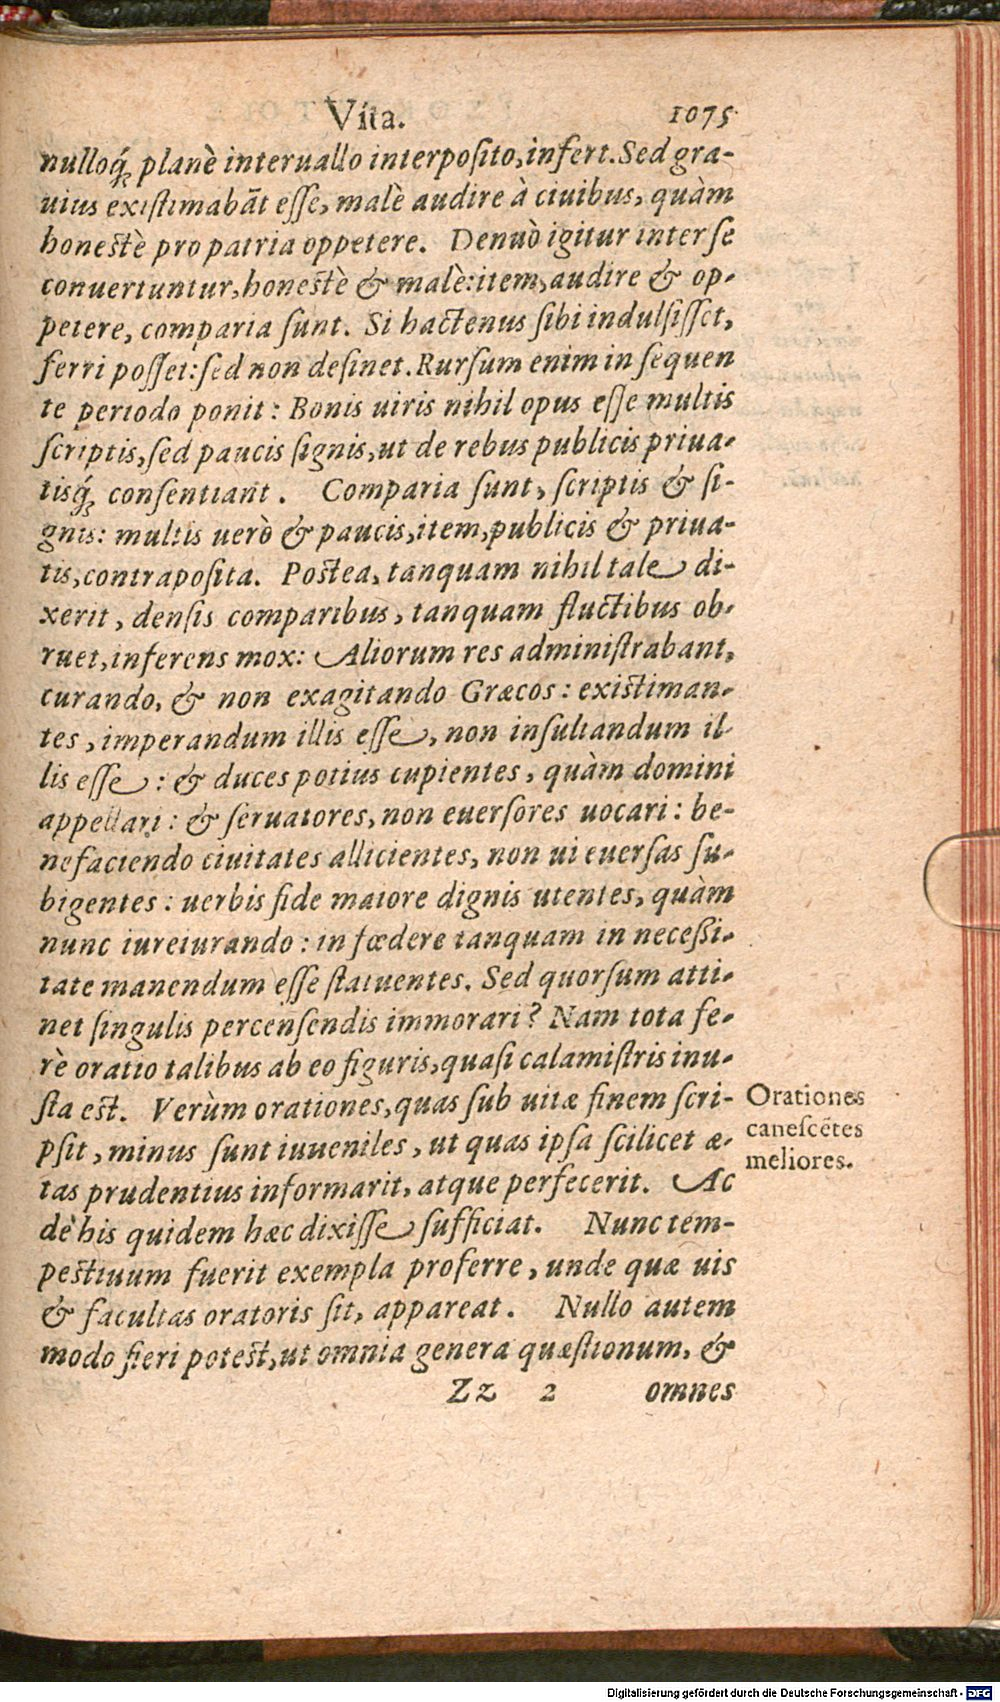 Vita. 1075
nulloq́; planè interuallo interposito, infert. Sed gra-
uius existimabāt esse, malè audire à ciuibus, quàm
honestè pro patria oppetere. Denuò igitur inter se
conuertuntur, honestè & malè: item, audire & op-
petere, comparia sunt. Si hactenus sibi indulsisset,
ferri posset: sed non desinet. Rursum enim in sequen
te periodo ponit: Bonis uiris nihil opus esse multis
scriptis, sed paucis signis, ut de rebus publicis priua-
tisq́; consentiant. Comparia sunt, scriptis & si-
gnis: multis uerò & paucis, item, publicis & priua-
tis, contraposita. Postea, tanquam nihil tale di-
xerit, densis comparibus, tanquam fluctibus ob-
ruet, inferens mox: Aliorum res administrabant,
curando, & non exagitando Græcos: existiman-
tes, imperandum illis esse, non insultandum il-
lis esse: & duces potius cupientes, quàm domini
appellari: & seruatores, non euersores uocari: be-
nefaciendo ciuitates allicientes, non ui euersas su-
bigentes: uerbis fide maiore dignis utentes, quàm
nunc iureiurando: in fœdere tanquam in neceßi-
tate manendum esse statuentes. Sed quorsum atti-
net singulis percensendis immorari? Nam tota fe-
rè oratio talibus ab eo figuris, quasi calamistris inu-
sta est. Verùm orationes, quas sub uitæ finem scri-
psit, minus sunt iuueniles, ut quas ipsa scilicet æ-
tas prudentius informarit, atque perfecerit. Ac
dè his quidem hæc dixisse sufficiat. Nunc tem-
pestiuum fuerit exempla proferre, unde quæ uis
& facultas oratoris sit, appareat. Nullo autem
modo fieri potest, ut omnia genera quæstionum, &
Zz 2 omnes
Orationes
canescētes
meliores.
Digitalisierung gefördert durch die Deutsche Forschungsgemeinschaft - DFG